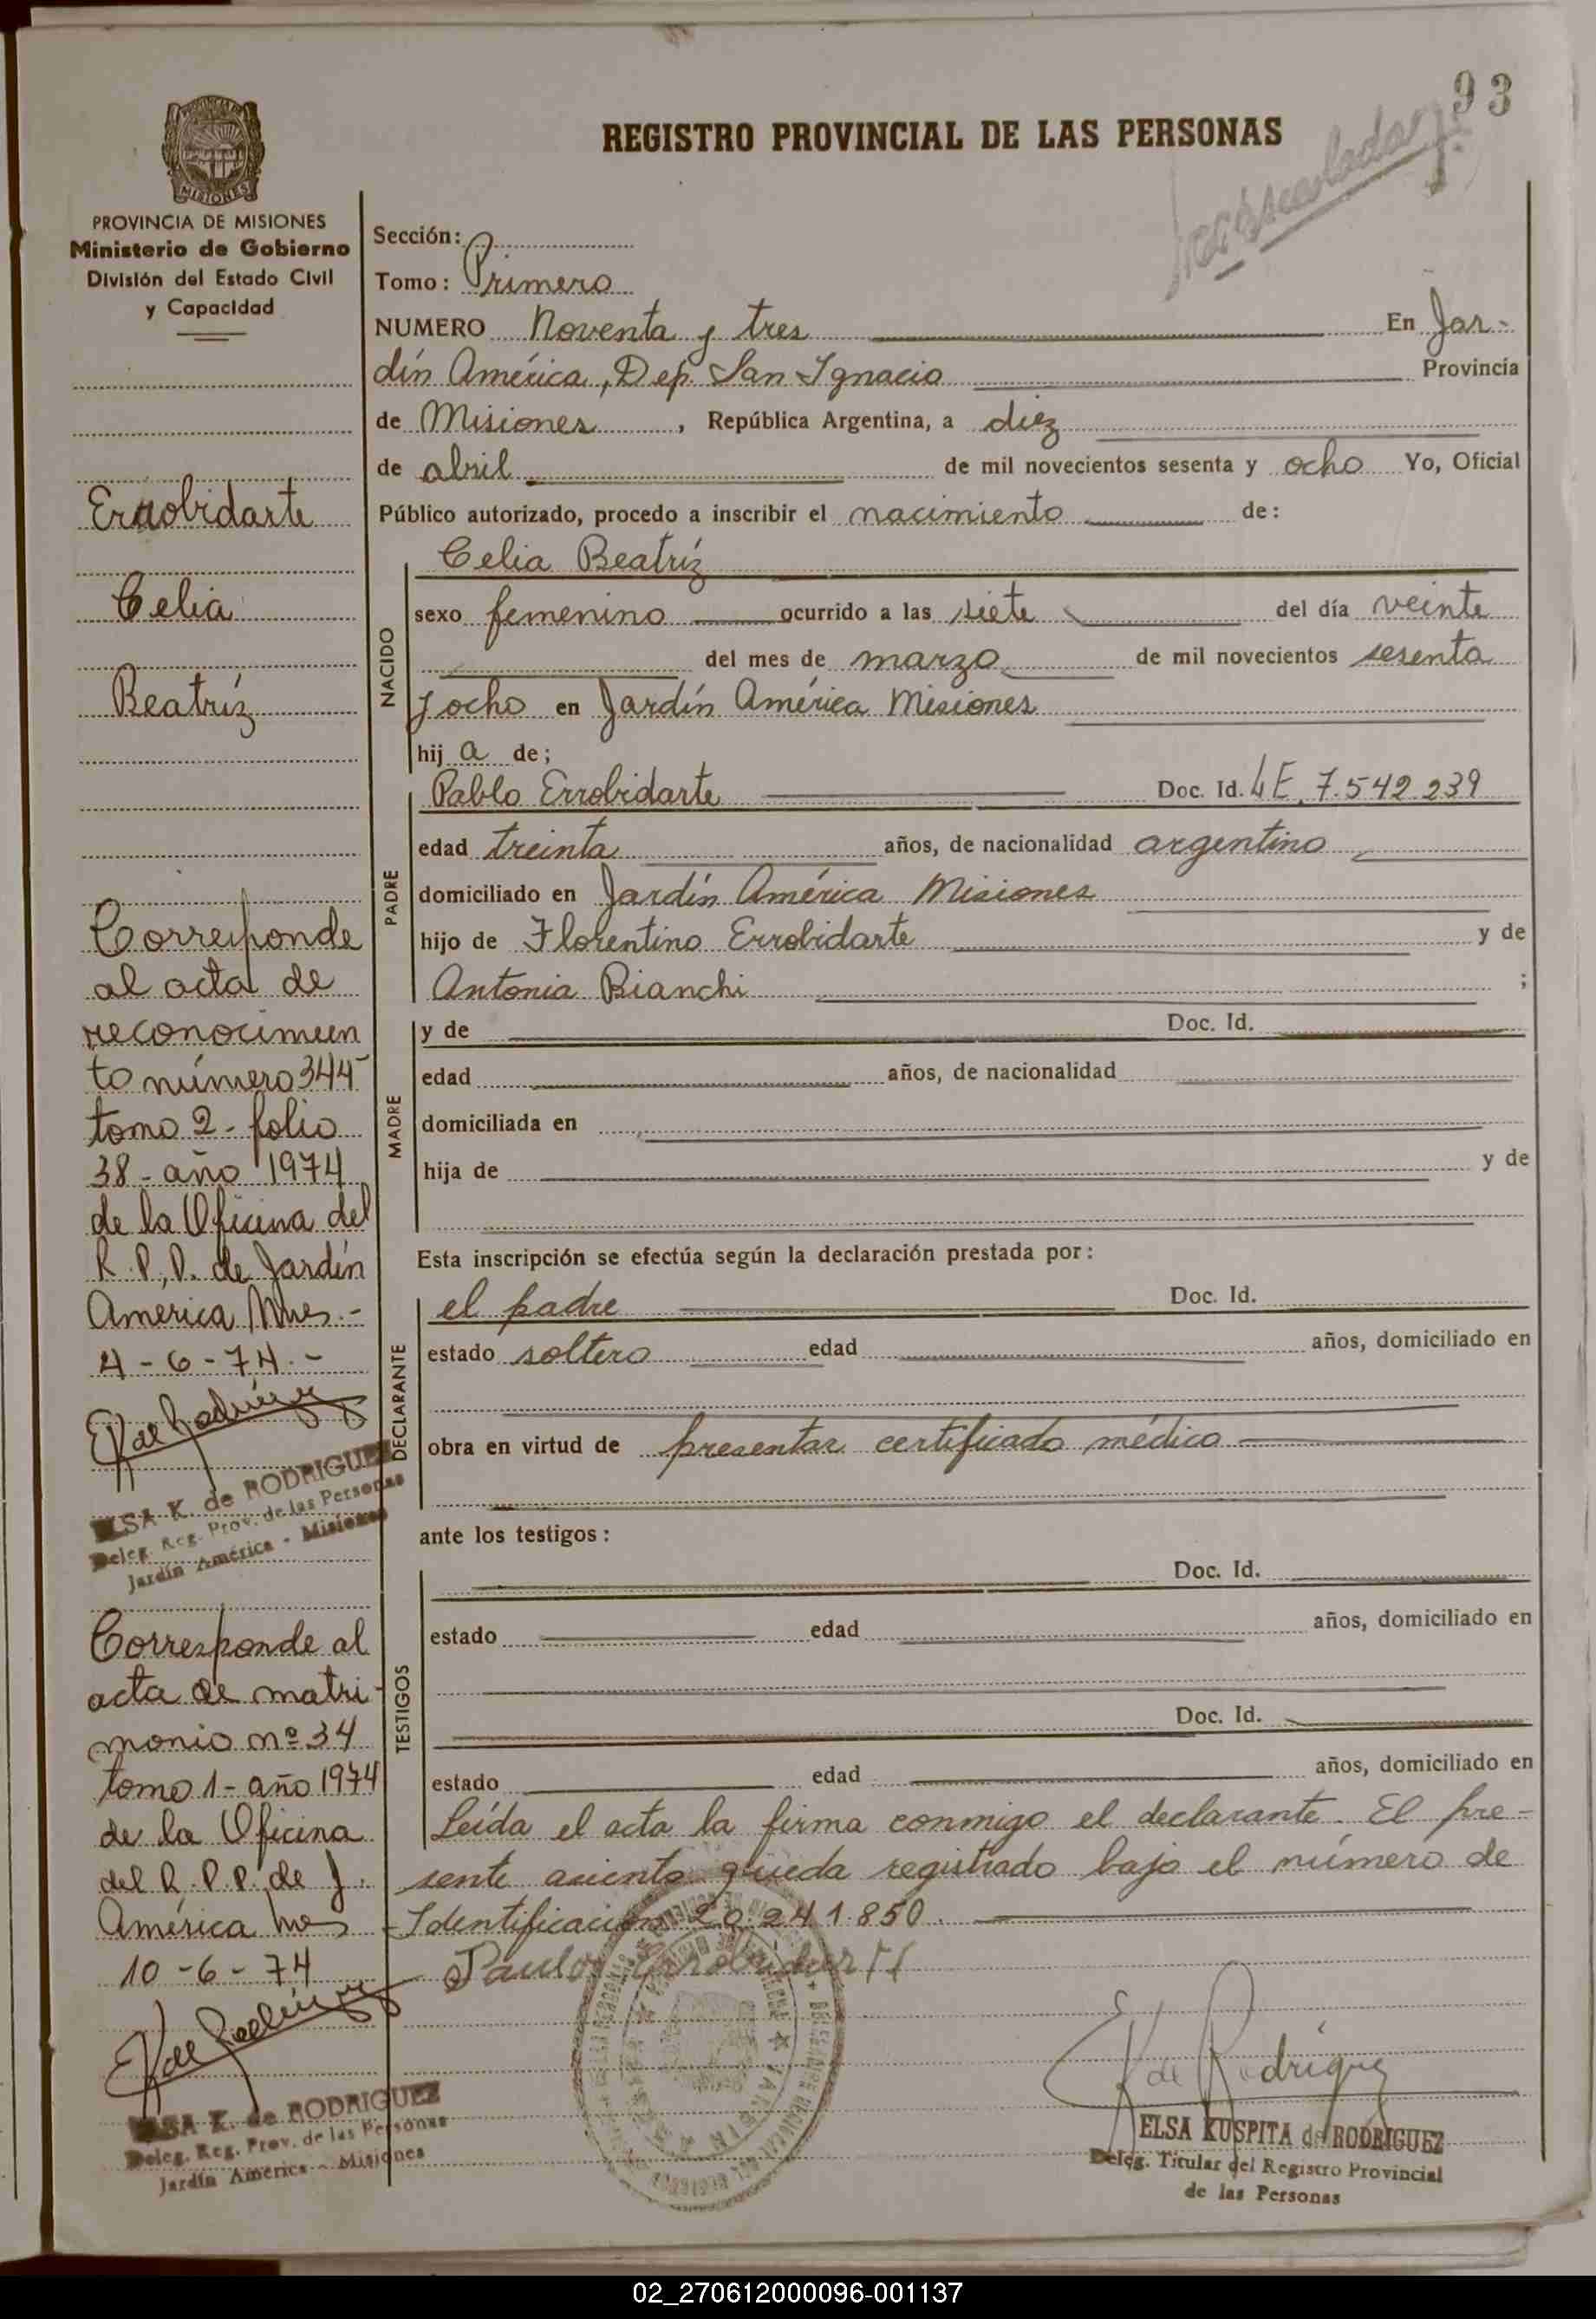 93
REGISTRO PROVINCIAL DE LAS PERSONAS
PROVINCIA DE MISIONES
Ministerio de Gobierno
División del Estado Civil
y Capacidad
Errobidarte
Celia
Beatríz
Corresponde
al acta de
reconocimien
to número 344
tomo 2 - folio
38 - año 1974
de la Oficina del
R. P. P. de Jardín
América Mnes. -
4 - 6 - 74. -
E K de Rodríguez
ELSA K. de RODRIGUEZ
Deleg. Reg. Prov. de las Personas
Jardín América - Misiones
Corresponde al
acta de matri-
monio nº 34
tomo 1 - año 1974
de la Oficina
del R. P. P. de J.
América Mnes
10 - 6 - 74
E K de Rodríguez
ELSA K. de RODRIGUEZ
Deleg. Reg. Prov. de las Personas
Jardín América - Misiones
Sección:
Tomo: Primero
NUMERO Noventa y tres En Jar-
dín América, Dep. San Ignacio Provincia
de Misiones, República Argentina, a diez
de abril de mil novecientos sesenta y ocho Yo, Oficial
Público autorizado, procedo a inscribir el nacimiento de:
NACIDO
Celia Beatríz
sexo femenino ocurrido a las siete del día veinte
del mes de marzo de mil novecientos sesenta
y ocho en Jardín América Misiones
hij a de;
PADRE
Pablo Errobidarte Doc. Id. LE. 7.542.239
edad treinta años, de nacionalidad argentino
domiciliado en Jardín América Misiones
hijo de Florentino Errobidarte y de
Antonia Bianchi ;
MADRE
y de Doc. Id.
edad años, de nacionalidad
domiciliada en
hija de y de
Esta inscripción se efectúa según la declaración prestada por:
DECLARANTE
el padre Doc. Id.
estado soltero edad años, domiciliado en
obra en virtud de presentar certificado médico
ante los testigos:
TESTIGOS
Doc. Id.
estado edad años, domiciliado en
Doc. Id.
estado edad años, domiciliado en
Leída el acta la firma conmigo el declarante. El pre-
sente asiento queda registrado bajo el número de
Identificación 20.241.850.
E K de Rodríguez
ELSA KUSPITA de RODRIGUEZ
Deleg. Titular del Registro Provincial
de las Personas
02_270612000096-001137